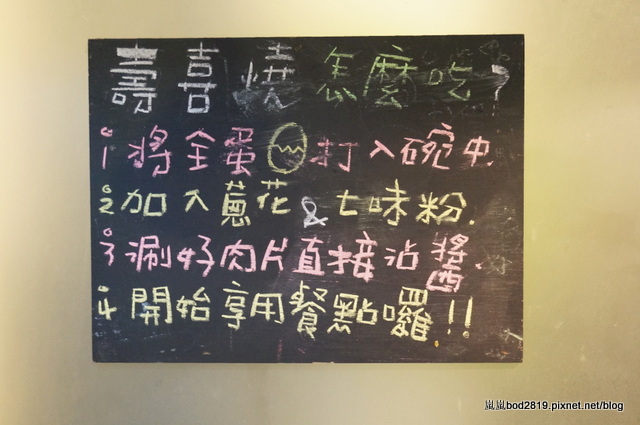 壽喜燒怎麼吃?
1 將全蛋打入碗中
2 加入蔥花&七味粉.
3 涮好肉片直接沾醬.
4 開始享用餐點囉!!
嵐嵐bod2819.pixnet.net/blog